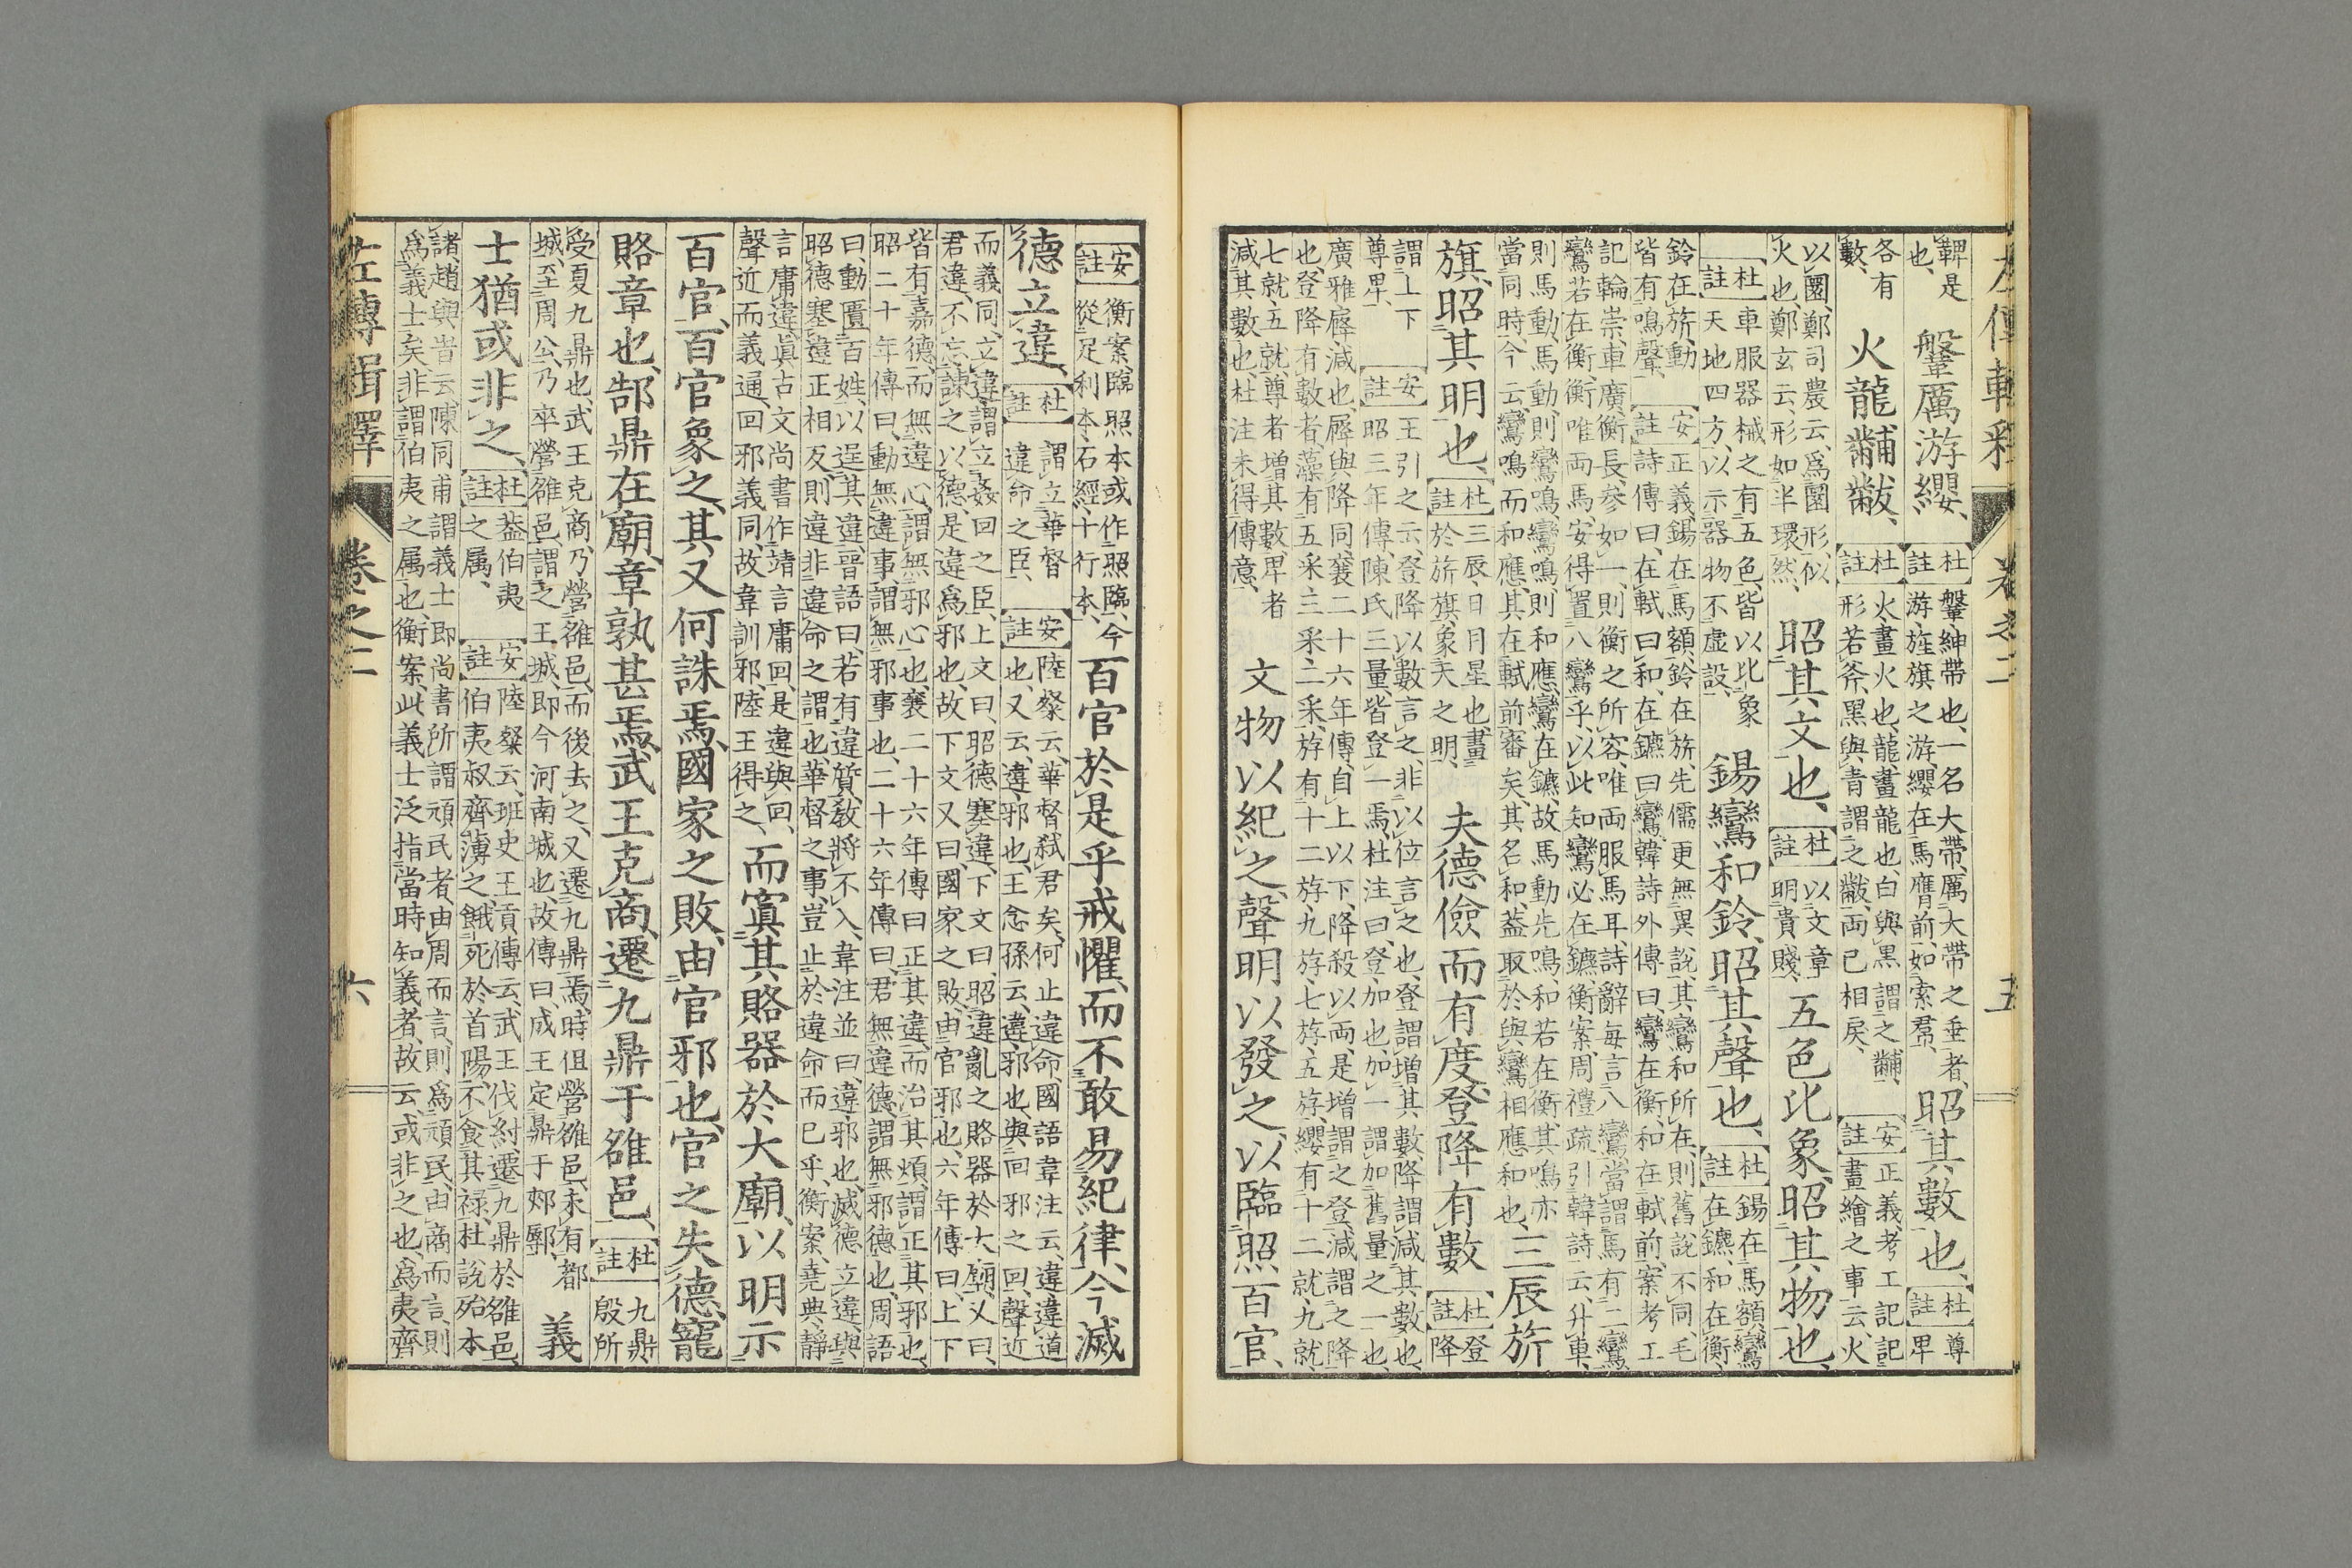 左傳輯釋 卷之二 五
鞞是
也、
鞶厲游纓、
杜註
鞶紳帶也、一名大帶、厲大帶之垂者、
游旌旗之游、纓在馬膺前、如索帬、
昭其數也、
杜註
尊
卑
各有
數、
火龍黼黻、
杜註
火畫火也、龍畫龍也、白與黑謂之黼、
形若斧、黑與青謂之黻、兩已相戾、
安註
正義、考工記記
畫繪之事云、火
以圜、鄭司農云、爲圜形似
火也、鄭玄云、形如半環然、
昭其文也、
杜註
以文章
明貴賤、
五色比象、昭其物也、
杜註
車服器械之有五色、皆以比象
天地四方、以示器物不虛設、
鍚鸞和鈴、昭其聲也、
杜註
鍚在馬額、鸞
在鑣、和在衡、
鈴在旂、動
皆有鳴聲、
安註
正義、鍚在馬額、鈴在旂、先儒更無異說、其鸞和所在、則舊說不同、毛
詩傳曰、在軾曰和、在鑣曰鸞、韓詩外傳曰、鸞在衡、和在軾前、案考工
記、輪崇、車廣、衡長、參如一、則衡之所容、唯兩服馬耳、詩辭每言八鸞、當謂馬有二鸞、
鸞若在衡、衡唯兩馬、安得置八鸞乎、以此知鸞必在鑣、衡案、周禮疏引韓詩云、升車、
則馬動、馬動、則鸞鳴、鸞鳴、則和應、鸞在鑣、故馬動先鳴、和若在衡、其鳴亦
當同時、今云、鸞鳴而和應、其在軾前審矣、其名和、蓋取於與鸞相應和也、
三辰旂
旗、昭其明也、
杜註
三辰、日月星也、畫
於旂旗、象天之明、
夫德儉而有度、登降有數
杜註
登
降
謂上下
尊卑、
安註
王引之云、登降以數言之、非以位言之也、登謂增其數、降謂減其數也、
昭三年傳、陳氏三量、皆登一焉、杜注曰、登、加也、加一謂加舊量之一也、
廣雅、㢙、減也、㢙與降同、襄二十六年傳、自上以下、降殺以兩、是增謂之登、減謂之降
也、登降有數者、藻有五采三采二采、斿有十二斿、九斿、七斿、五斿、纓有十二就、九就
七就、五就、尊者增其數、卑者
減其數也、杜注未得傳意、
文物以紀之、聲明以發之、以臨照百官、
安註
衡案、臨照本或作照臨、今
從足利本、石經、十行本、
百官於是乎戒懼、而不敢易紀律、今滅
德立違、
杜註
謂立華督
違命之臣、
安註
陸粲云、華督弒君矣、何止違命、國語韋注云、違、違道
也、又云、違、邪也、王念孫云、違、邪也、與回邪之回、聲近
而義同、立違、謂立姦回之臣、上文曰、昭德塞違、下文曰、昭違亂之賂器於大廟、又曰、
君違、不忘諫之以德、是違爲邪也、故下文又曰、國家之敗、由官邪也、六年傳曰、上下
皆有嘉德、而無違心、謂無邪心也、襄二十六年傳曰、正其違、而治其煩、謂正其邪也、
昭二十年傳曰、動無違事、謂無邪事也、二十六年傳曰、君無違德、謂無邪德也、周語
曰、動匱百姓、以逞其違、晉語曰、若有違質、敎將不入、韋注並曰、違、邪也、滅德立違、與
昭德塞違、正相反、則違非違命之謂也、華督之事、豈止於違命而已乎、衡案、堯典、靜
言庸違、眞古文尚書作靖言庸回、是違與回、
聲近而義通、回邪義同、故韋訓邪、陸王得之、
而寘其賂器於大廟、以明示
百官、百官象之、其又何誅焉、國家之敗、由官邪也、官之失德、寵
賂章也、郜鼎在廟、章孰甚焉、武王克商、遷九鼎于雒邑、
杜註
九鼎、
殷所
受夏九鼎也、武王克商、乃營雒邑、而後去之、又遷九鼎焉、時但營雒邑、未有都
城、至周公、乃卒營雒邑、謂之王城、即今河南城也、故傳曰、成王定鼎于郟鄏、
義
士猶或非之、
杜註
蓋伯夷
之屬、
安註
陸粲云、班史王貢傳云、武王伐紂、遷九鼎於雒邑、
伯夷叔齊薄之、餓死於首陽、不食其祿、杜說殆本
諸、趙與旹云、陳同甫謂義士即尚書所謂頑民者、由周而言、則爲頑民、由商而言、則
爲義士矣、非謂伯夷之屬也、衡案、此義士泛指當時知義者、故云或非之也、爲夷齊
左傳輯釋 卷之二 六